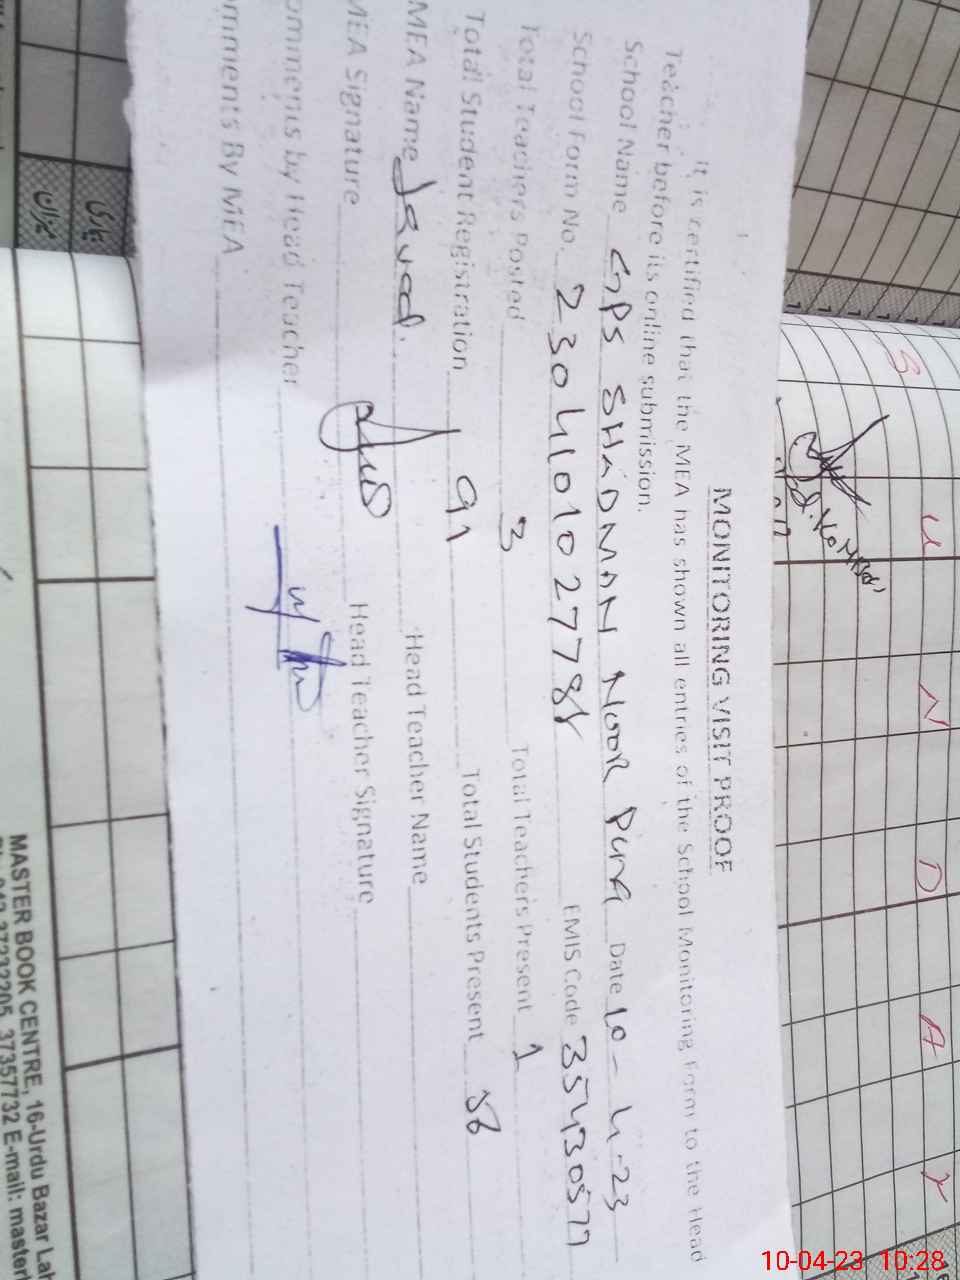 MONITORING VISIT PROOF
It is certified that the MEA has shown all entries of the School Monitoring Form to the Head
Teacher before its online submission.
School Name GPS SHADMAN NOOR PURA Date 10-4-23
School Form No. 2304101027788 EMIS Code 35430577
Total Teachers Posted 3 Total Teachers Present 1
Total Student Registration 91 Total Students Present 56
MEA Name Javed. Head Teacher Name
MEA Signature Head Teacher Signature
omments by Head Teacher
omments By MEA
S U N D A Y
MASTER BOOK CENTRE, 16-Urdu Bazar Lah
37357732 E-mail: master
10-04-23 10:28